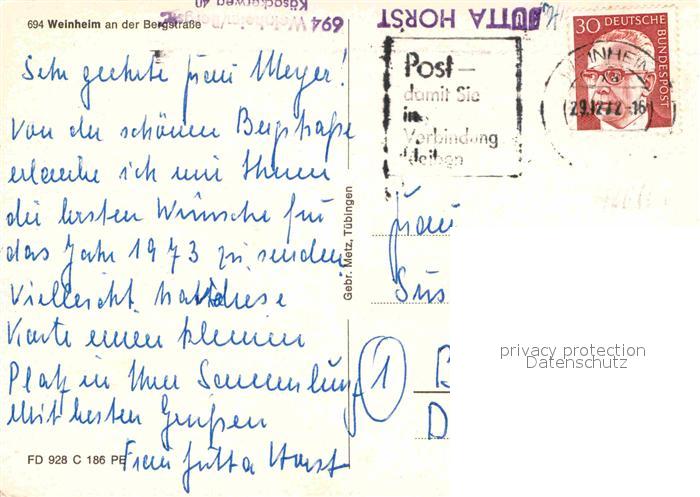 694 Weinheim an der Bergstraße
694 Weinheim/Bergstr.
Käsackerweg 40
JUTTA HORST
Sehr geehrte Frau Meyer!
Von der schönen Bergstraße
erlaube ich mir Ihnen
die besten Wünsche für
das Jahr 1973 zu senden
Vielleicht hat diese
Karte einen kleinen
Platz in Ihrer Sammlung
Mit besten Grüßen
Frau Jutta Horst
FD 928 C 186 PE
Gebr. Metz, Tübingen
Post –
damit Sie
in
Verbindung
bleiben
WEINHEIM
29.12.72-16
30 DEUTSCHE
BUNDESPOST
Frau
Sus
1
D
privacy protection
Datenschutz